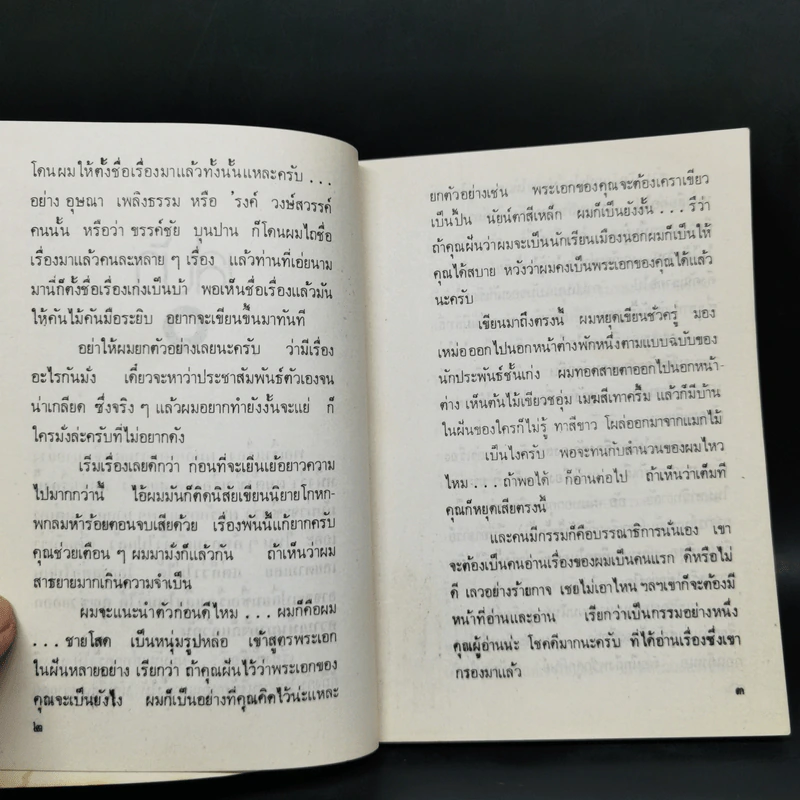 โดนผมให้ตั้งชื่อเรื่องมาแล้วทั้งนั้นแหละครับ...
อย่าง อุษณา เพลิงธรรม หรือ 'รงค์ วงษ์สวรรค์
คนนั้น หรือว่า ขรรค์ชัย บุนปาน ก็โดนผมไถชื่อ
เรื่องมาแล้วคนละหลาย ๆ เรื่อง แล้วท่านที่เอ่ยนาม
มานี่ก็ตั้งชื่อเรื่องเก่งเป็นบ้า พอเห็นชื่อเรื่องแล้วมัน
ให้คันไม้คันมือระยิบ อยากจะเขียนขึ้นมาทันที
อย่าให้ผมยกตัวอย่างเลยนะครับ ว่ามีเรื่อง
อะไรกันมั่ง เดี๋ยวจะหาว่าประชาสัมพันธ์ตัวเองจน
น่าเกลียด ซึ่งจริง ๆ แล้วผมอยากทำยังงั้นจะแย่ ก็
ใครมั่งล่ะครับที่ไม่อยากดัง
เริ่มเรื่องเลยดีกว่า ก่อนที่จะเยิ่นเย้อยาวความ
ไปมากกว่านี้ ไอ้ผมมันก็ติดนิสัยเขียนนิยายโกหก-
พกลมห้าร้อยตอนจบเสียด้วย เรื่องพันนี้แก้ยากครับ
คุณช่วยเตือน ๆ ผมมามั่งก็แล้วกัน ถ้าเห็นว่าผม
สาธยายมากเกินความจำเป็น
ผมจะแนะนำตัวก่อนดีไหม...ผมก็คือผม
...ชายโสด เป็นหนุ่มรูปหล่อ เข้าสูตรพระเอก
ในฝันหลายอย่าง เรียกว่า ถ้าคุณฝันไว้ว่าพระเอกของ
คุณจะเป็นยังไง ผมก็เป็นอย่างที่คุณคิดไว้น่ะแหละ
๒
ยกตัวอย่างเช่น พระเอกของคุณจะต้องเคราเขียว
เป็นปื้น นัยน์ตาสีเหล็ก ผมก็เป็นยังงั้น...รึว่า
ถ้าคุณฝันว่าผมจะเป็นนักเรียนเมืองนอกผมก็เป็นให้
คุณได้สบาย หวังว่าผมคงเป็นพระเอกของคุณได้แล้ว
นะครับ
เขียนมาถึงตรงนี้ ผมหยุดเขียนชั่วครู่ มอง
เหม่อออกไปนอกหน้าต่างพักหนึ่งตามแบบฉบับของ
นักประพันธ์ชั้นเก่ง ผมทอดสายตาออกไปนอกหน้า-
ต่าง เห็นต้นไม้เขียวชอุ่ม เมฆสีเทาครึ้ม แล้วก็มีบ้าน
ในฝันของใครก็ไม่รู้ ทาสีขาว โผล่ออกมาจากแมกไม้
เป็นไงครับ พอจะทนกับสำนวนของผมไหว
ไหม...ถ้าพอได้ ก็อ่านต่อไป ถ้าเห็นว่าเต็มที
คุณก็หยุดเสียตรงนี้
และคนมีกรรมก็คือบรรณาธิการนั่นเอง เขา
จะต้องเป็นคนอ่านเรื่องของผมเป็นคนแรก ดีหรือไม่
ดี เลวอย่างร้ายกาจ เชยไม่เอาไหน ฯลฯเขาก็จะต้องมี
หน้าที่อ่านและอ่าน เรียกว่าเป็นกรรมอย่างหนึ่ง
คุณผู้อ่านน่ะ โชคดีมากนะครับ ที่ได้อ่านเรื่องซึ่งเขา
กรองมาแล้ว
๓